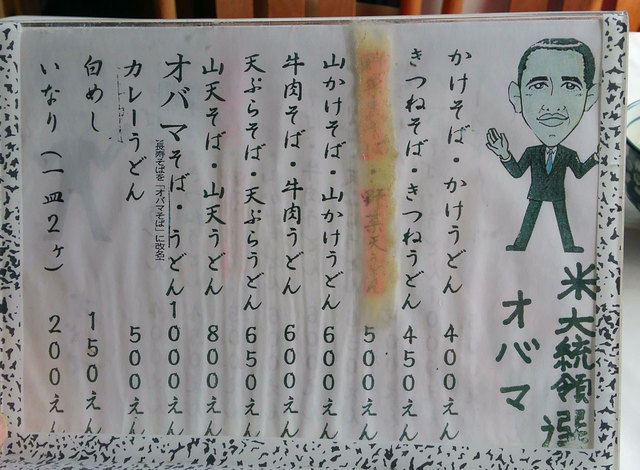 米大統領選
オバマ
かけそば・かけうどん 400えん
きつねそば・きつねうどん 450えん
野菜天そば・野菜天うどん 500えん
山かけそば・山かけうどん 600えん
牛肉そば・牛肉うどん 600えん
天ぷらそば・天ぷらうどん 650えん
山天そば・山天うどん 800えん
オバマそば・うどん 1000えん
(長寿そばを「オバマそば」に改名)
カレーうどん 500えん
白めし 150えん
いなり(一皿2ヶ) 200えん